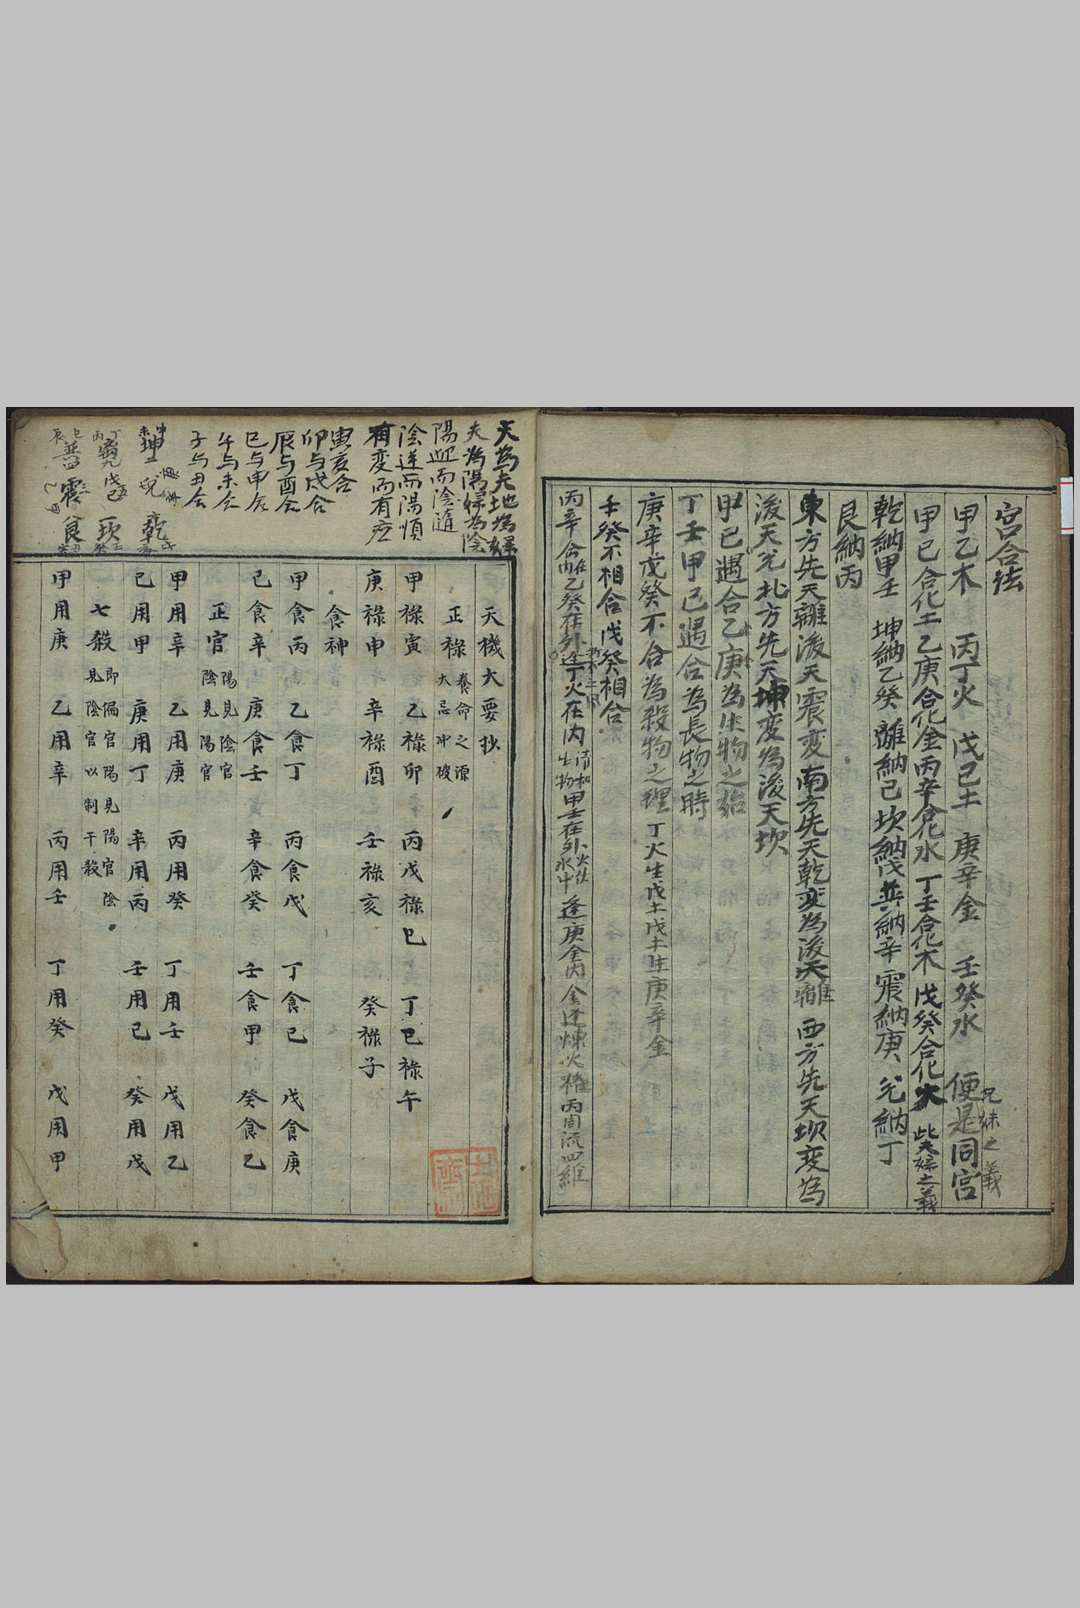 宮合法
甲乙木 丙丁火 戊己土 庚辛金 壬癸水 便是同宮
兄妹之義
甲己合化土乙庚合化金丙辛合化水丁壬合化木戊癸合化火 此夫婦之義
乾納甲壬 坤納乙癸 離納己坎納戊巽納辛 震納庚 兌納丁
艮納丙
東方先天離後天震変南方先天乾変為後天離 西方先天坎変為
後天兌北方先天坤変為後天坎
甲己遇合乙庚為生物之始
丁壬甲己遇合為長物之時
庚辛戊癸不合為殺物之理 丁火生戊土戊土生庚辛金
壬癸不相合戊癸相合
丙辛合在內乙癸在外逢丁火在內 清和生物 甲壬在外 逢庚金內金逢煉火 丙周流四維
天為夫地為婦
夫為陽婦為陰
陽迎而陰隨
陰逆而陽順
有変而有应
寅亥合
卯与戌合
辰与酉合
巳与申合
午与未合
子与丑合
坤 兌 乾
戊己 坎
震 艮
天機大要抄
正祿 養命之源 大忌冲破
甲祿寅 乙祿卯 丙戊祿巳 丁己祿午
庚祿申 辛祿酉 壬祿亥 癸祿子
食神
甲食丙 乙食丁 丙食戊 丁食己 戊食庚
己食辛 庚食壬 辛食癸 壬食甲 癸食乙
正官 陽見陰官 陰見陽官
甲用辛 乙用庚 丙用癸 丁用壬 戊用乙
己用甲 庚用丁 辛用丙 壬用己 癸用戊
七殺 即偏官陽見陽官陰見陰官以制干殺
甲用庚 乙用辛 丙用壬 丁用癸 戊用甲